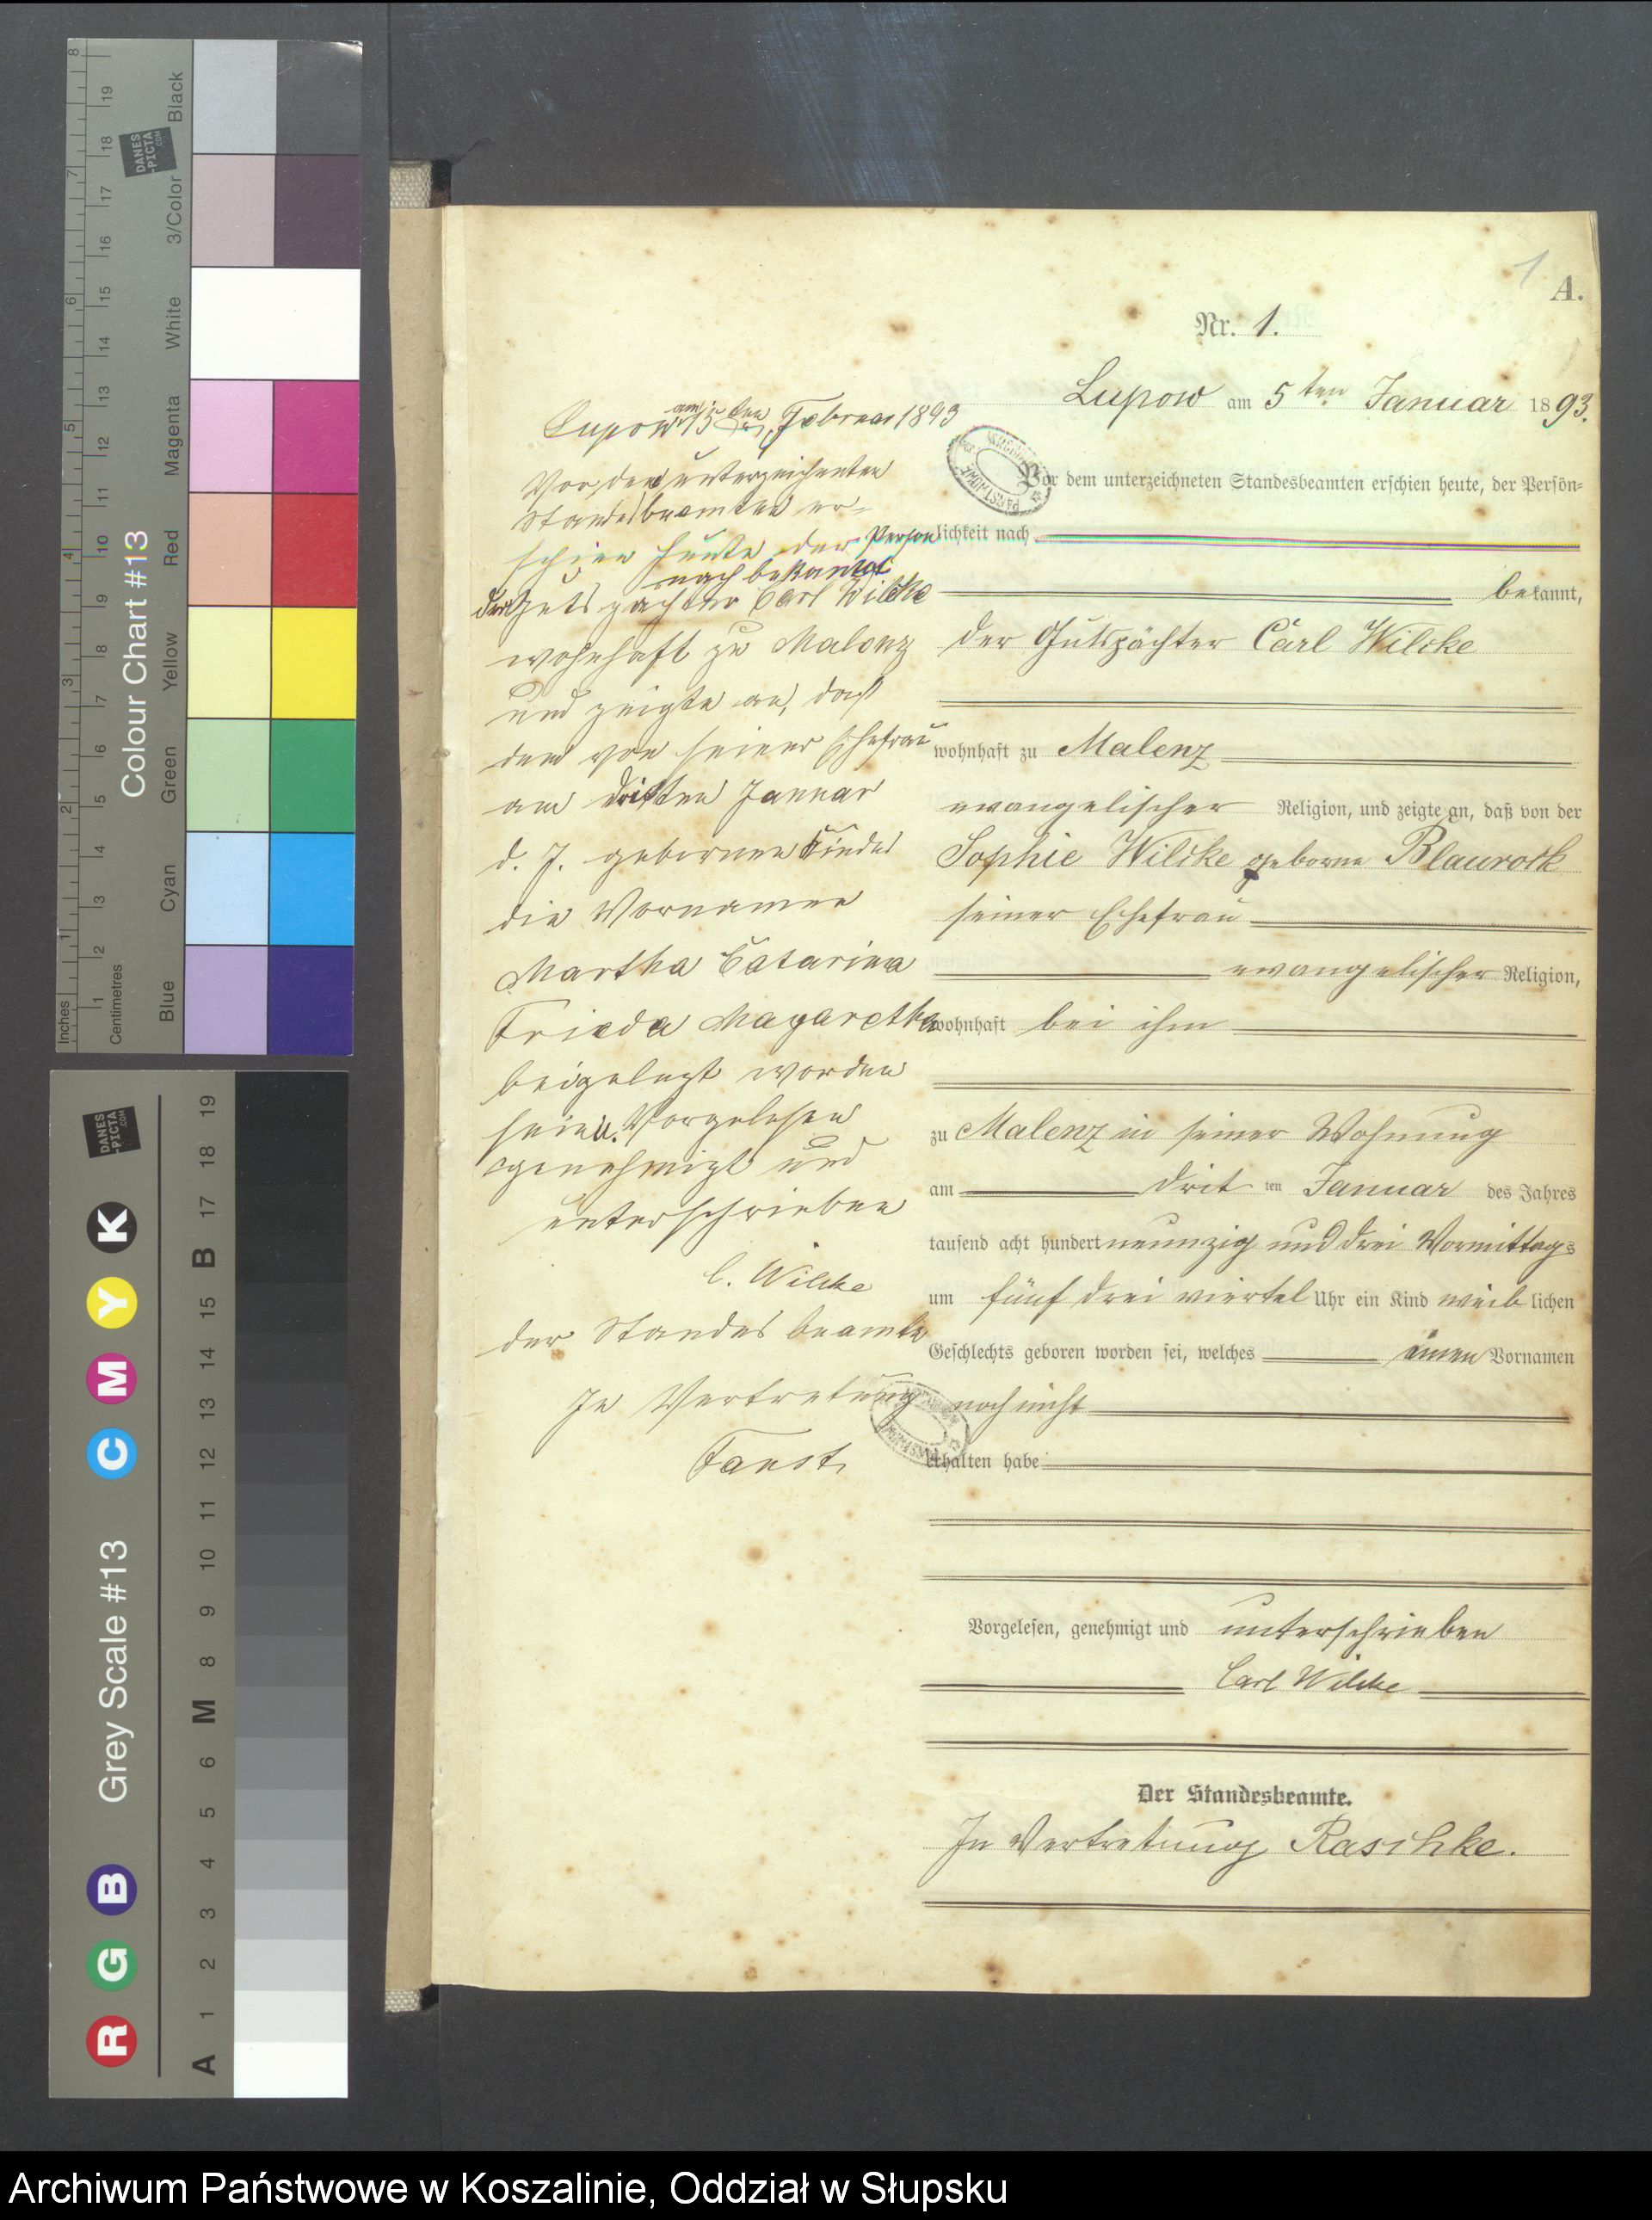 1
A.
Nr. 1.
Lupow am 5ten Januar 1893.
Vor dem unterzeichneten Standesbeamten erschien heute, der Persön=
lichkeit nach
bekannt,
der Gutspächter Carl Wilcke
wohnhaft zu Malenz
evangelischer Religion, und zeigte an, daß von der
Sophie Wilcke geborne Blaurock
seiner Ehefrau
evangelischer Religion,
wohnhaft bei ihm
zu Malenz in seiner Wohnung
am drit ten Januar des Jahres
tausend acht hundert neunzig und drei Vormittags
um fünf drei viertel Uhr ein Kind weiblichen
Geschlechts geboren worden sei, welches einen Vornamen
noch nicht
erhalten habe
Vorgelesen, genehmigt und unterschrieben
Carl Wilcke
Der Standesbeamte.
In Vertretung Raschke.
Lupow am 15ten Februar 1893
Vor dem unterzeichneten
Standesbeamten er=
schien heute der Person
nach bekannt
der Gutspächter Carl Wilcke
wohnhaft zu Malenz
und zeigte an, daß
dem von seiner Ehefrau
am dritten Januar
d. J. gebornen Kinde
die Vornamen
Martha Catarina
Frieda Magaretha
beigelegt worden
seien. Vorgelesen
genehmigt und
unterschrieben
C. Wilcke
der Standesbeamte
In Vertretung
Faust
Colour Chart #13
Inches
Centimetres
Blue
Cyan
Green
Yellow
Red
Magenta
White
3/Color
Black
DANES
-PICTA
.COM
Grey Scale #13
R G B C M Y K
A 1 2 3 4 5 6 M 8 9 10 11 12 13 14 15 B 17 18 19
DANES
-PICTA
.COM
Archiwum Państwowe w Koszalinie, Oddział w Słupsku